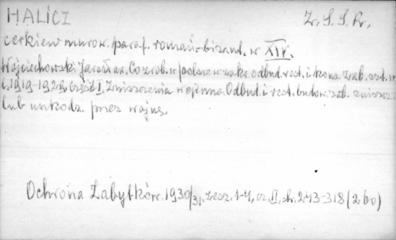 HALICZ Z.S.S.R.
cerkiew murow. paraf. romań.-bizant. w XIV.
Wojciechowski Jarosław. Co zrob. w polsce w zakr. odbud. rest. i kons. zab.
1919-1929. Część I. Zniszczenia wojenne. Odbud. i rest. budow. zab. zniszcz.
lub uszkodz. przez wojnę.
Ochrona Zabytków. 1930/31. zesz. 1-4, cz. II, str. 243-318 (260)